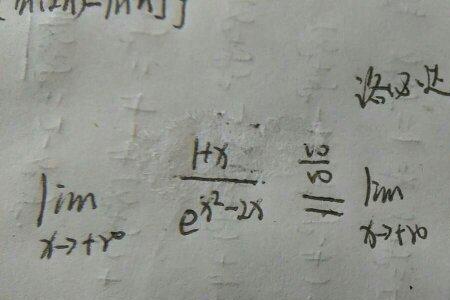 洛必达
lim x→+∞ (1+x)/(e^(x²-2x)) =^(∞/∞) lim x→+∞